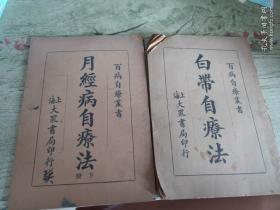 百病自療叢書
月經病自療法
上海大衆書局印行
百病自療叢書
白帶自療法
上海大衆書局印行